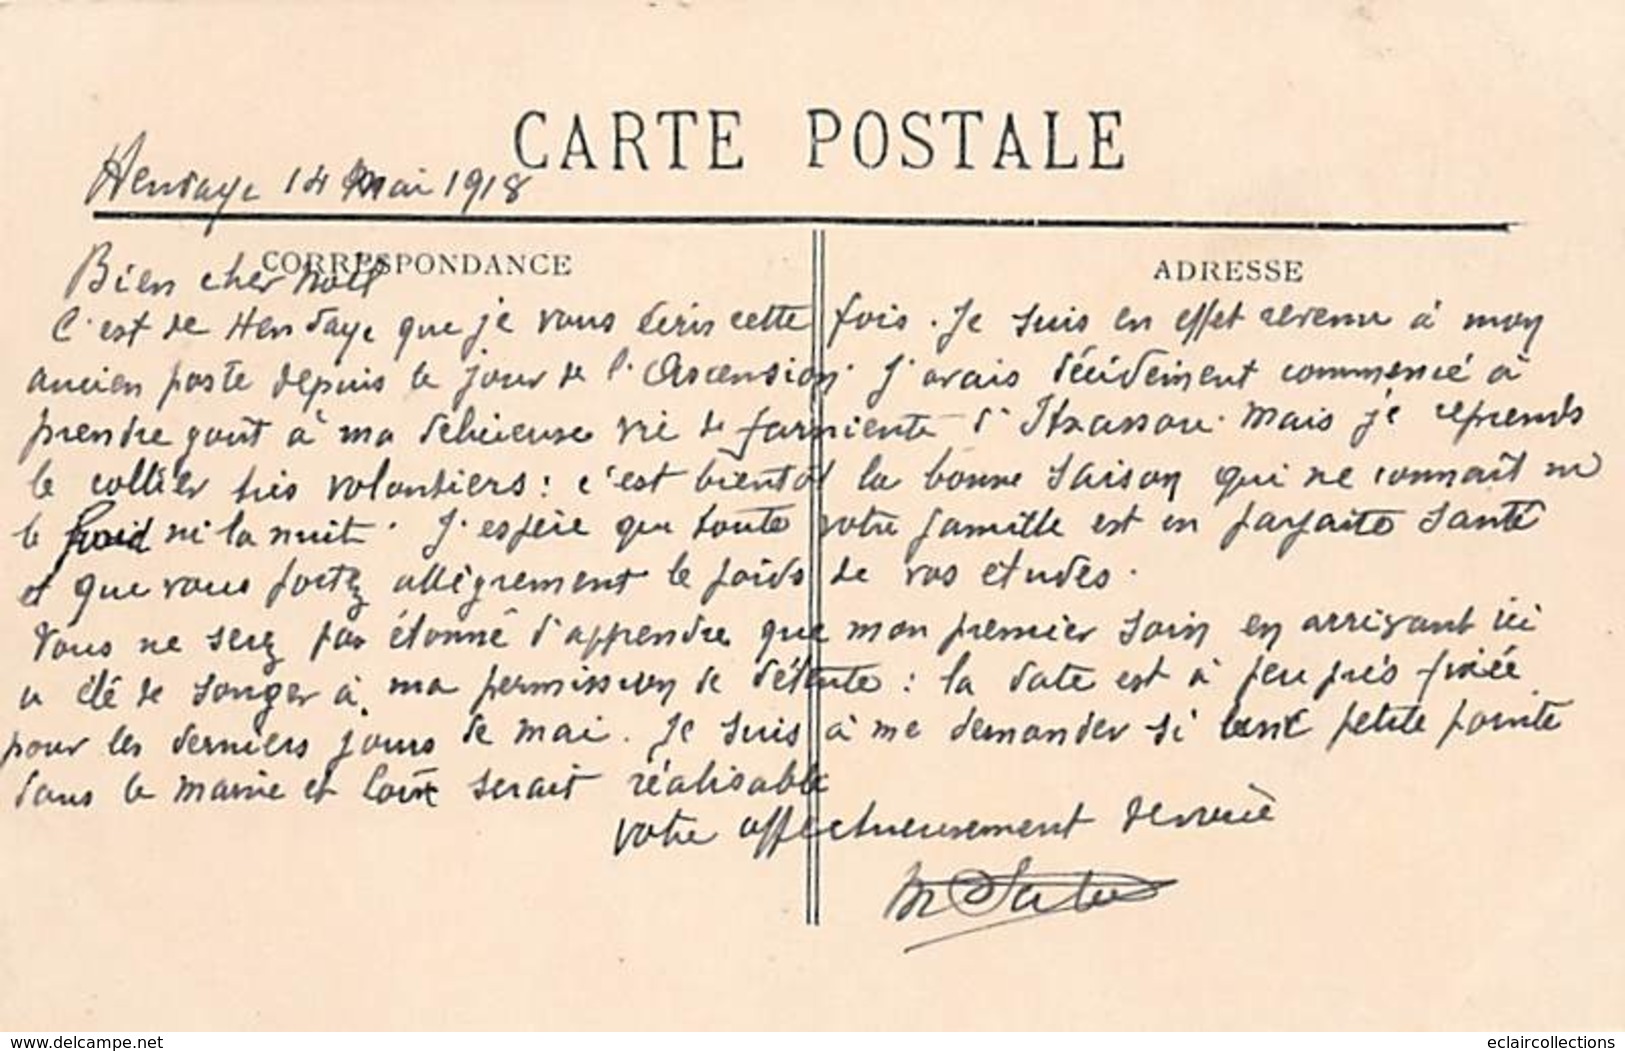 CARTE POSTALE
Hendaye 14 Mai 1918
CORRESPONDANCE
ADRESSE
Bien cher Noël
C'est de Hendaye que je vous écris cette fois. Je suis en effet revenu à mon
ancien poste depuis le jour de l'Ascension. J'avais décidément commencé à
prendre goût à ma délicieuse vie de farniente d'Itxassou. Mais je reprends
le collier très volontiers : c'est bientôt la bonne saison qui ne connaît ni
le froid ni la nuit. J'espère que toute votre famille est en parfaite santé
et que vous portez allègrement le poids de vos études.
Vous ne serez pas étonné d'apprendre que mon premier soin en arrivant ici
a été de songer à ma permission de détente : la date est à peu près fixée
pour les derniers jours de mai. Je suis à me demander si une petite pointe
dans le Maine et Loire serait réalisable
votre affectueusement dévoué
www.delcampe.net
eclaircollections